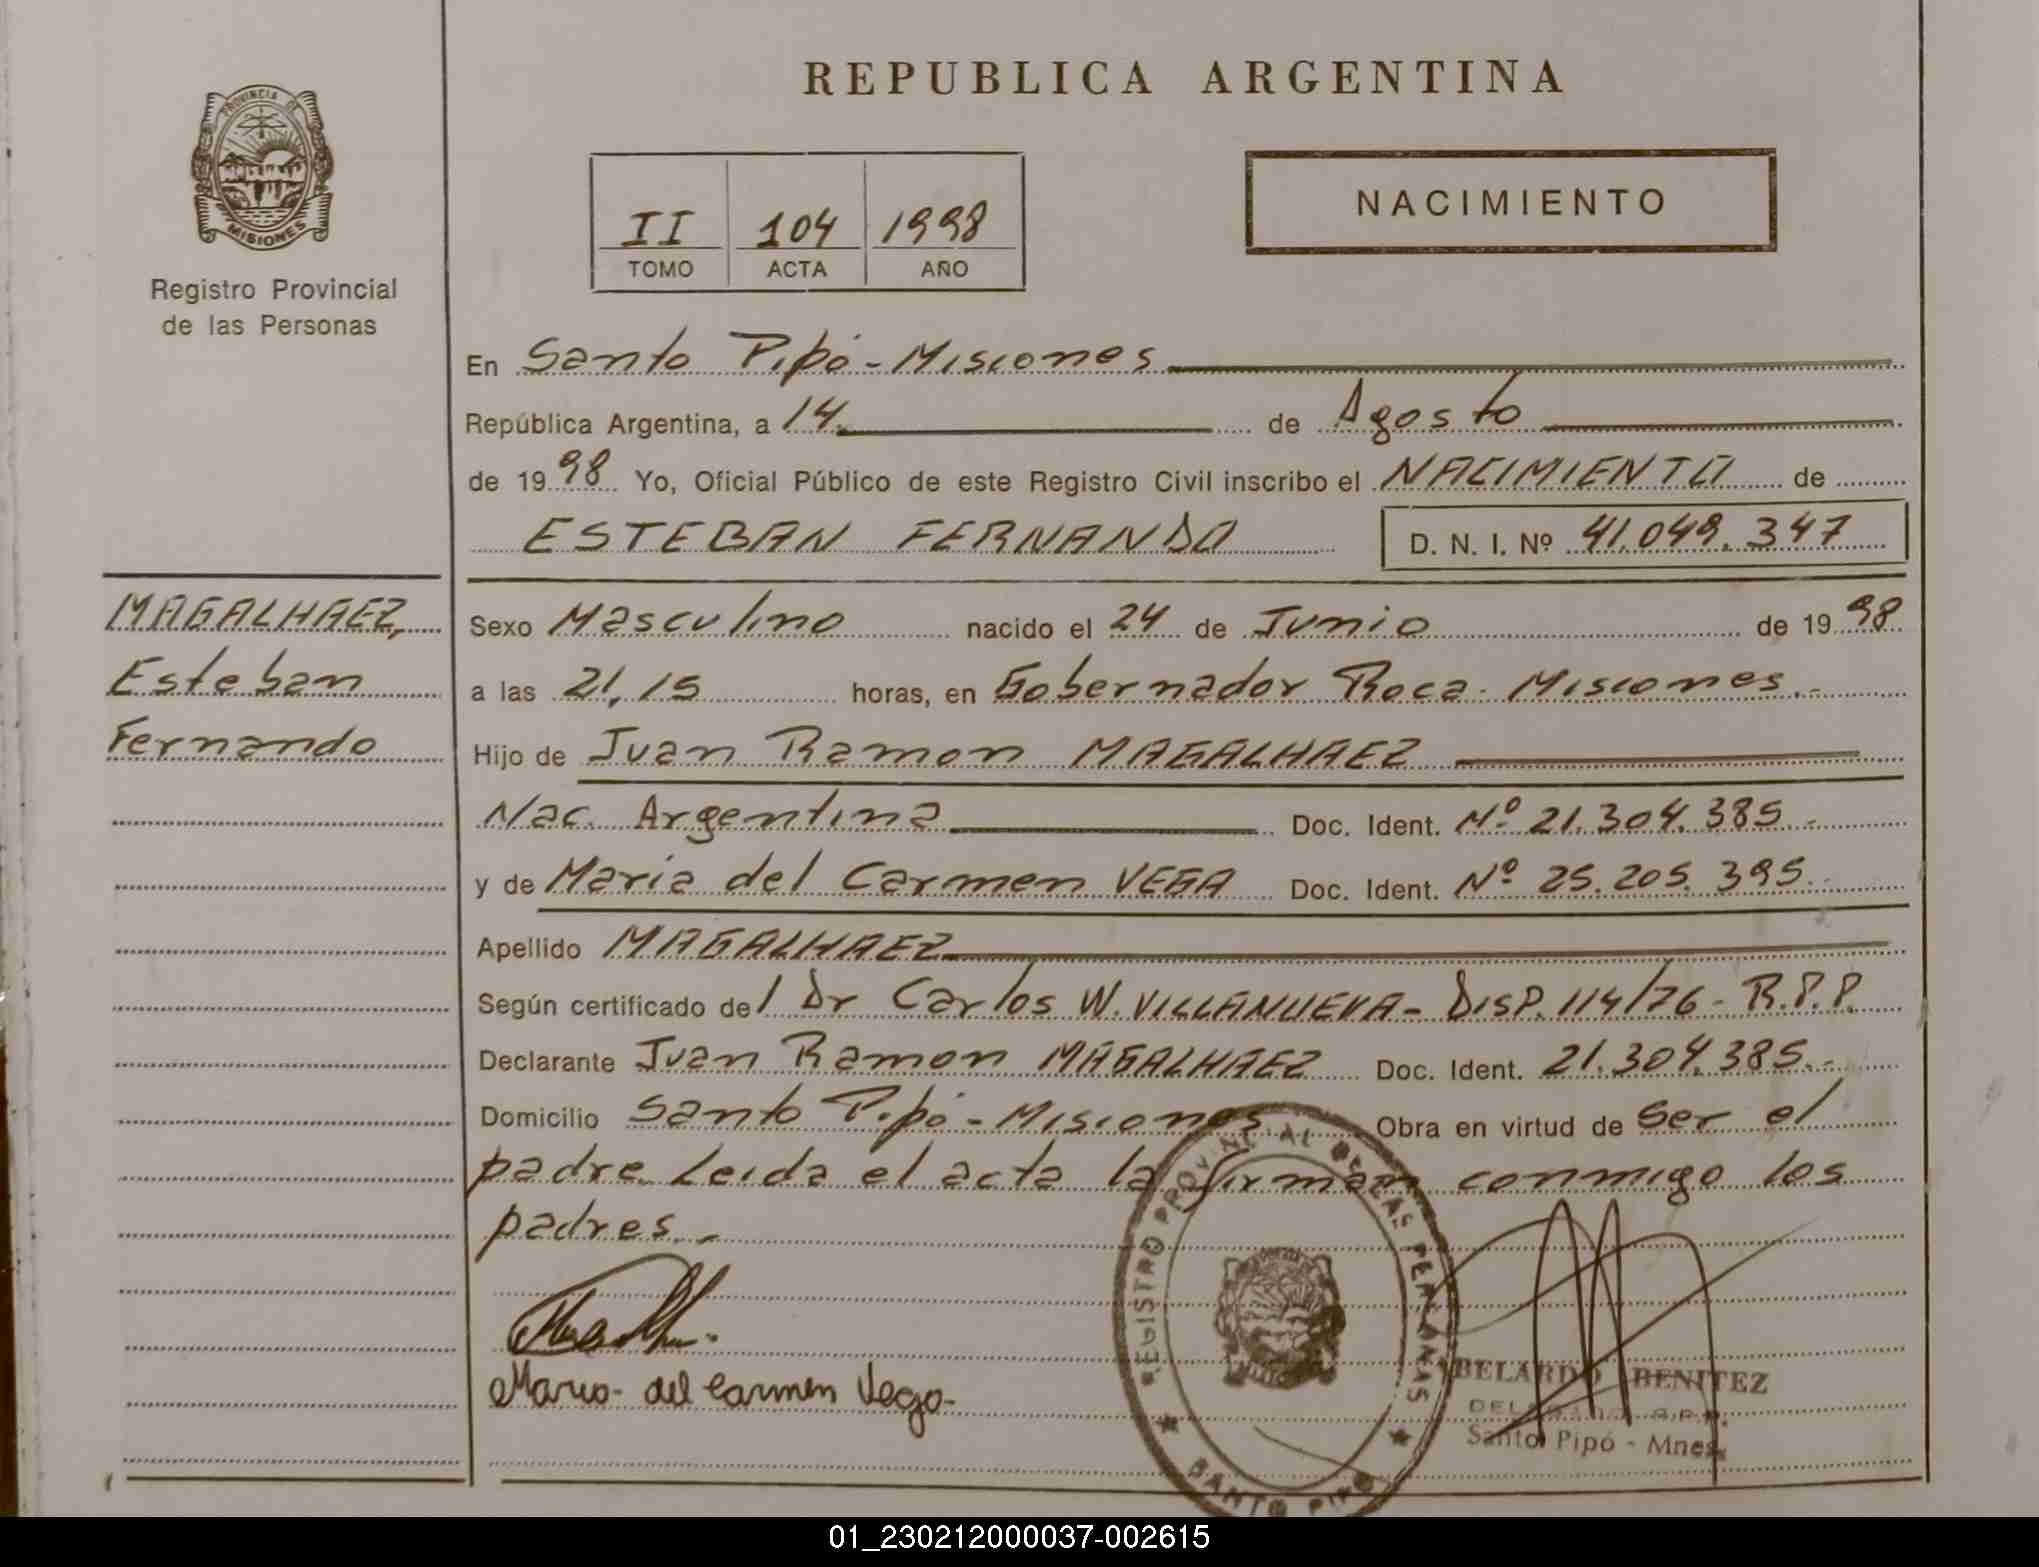 REPUBLICA ARGENTINA
PROVINCIA DE
MISIONES
Registro Provincial
de las Personas
II 104 1998
TOMO ACTA AÑO
NACIMIENTO
En Santo Pipó - Misiones
República Argentina, a 14 de Agosto
de 1998 Yo, Oficial Público de este Registro Civil inscribo el NACIMIENTO de
ESTEBAN FERNANDO D. N. I. Nº 41.049.347
MAGALHAEZ,
Esteban
Fernando
Sexo Masculino nacido el 24 de Junio de 1998
a las 21,15 horas, en Gobernador Roca - Misiones.-
Hijo de Juan Ramon MAGALHAEZ
Nac. Argentina Doc. Ident. Nº 21.304.385.-
y de Maria del Carmen VEGA Doc. Ident. Nº 25.205.395.-
Apellido MAGALHAEZ
Según certificado de/ Dr Carlos W. VILLANUEVA - DISP. 114/76 - R.P.P.
Declarante Juan Ramon MAGALHAEZ Doc. Ident. 21.304.385.-
Domicilio Santo Pipó - Misiones Obra en virtud de Ser el
padre. Leida el acta la firman conmigo los
padres.-
Maria del Carmen Vega-
REGISTRO PROVINCIAL DE LAS PERSONAS
SANTO PIPO
BELARDO BENITEZ
Santo Pipó - Mnes.
01_230212000037-002615